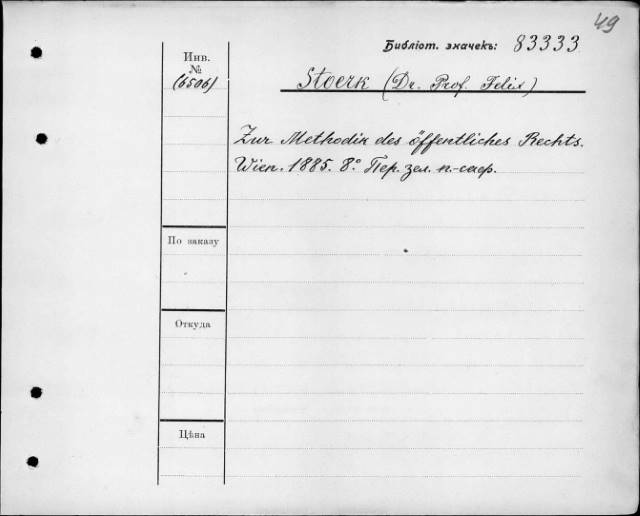 49
Библіот. значекъ: 83333
Инв.
№
(6506)
Stoerk (Dr. Prof. Felix)
Zur Methodik des öffentliches Rechts.
Wien. 1885. 8° Пер. зел. п.-саф.
По заказу
Откуда
Цѣна